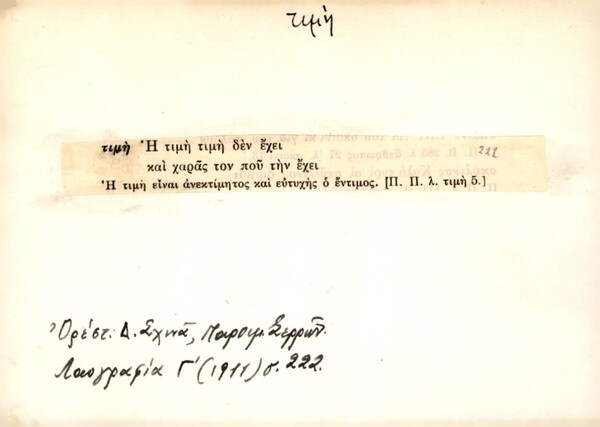 τιμὴ
τιμὴ Ἡ τιμὴ τιμὴ δὲν ἔχει
222
καὶ χαρᾶς τον ποῦ τὴν ἔχει
Ἡ τιμὴ εἶναι ἀνεκτίμητος καὶ εὐτυχὴς ὁ ἔντιμος. [Π. Π. λ. τιμὴ 5.]
Ὀρέστ. Δ. Σχινᾶ, Παροιμ. Σερρῶν.
Λαογραφία Γ' (1911) σ. 222.